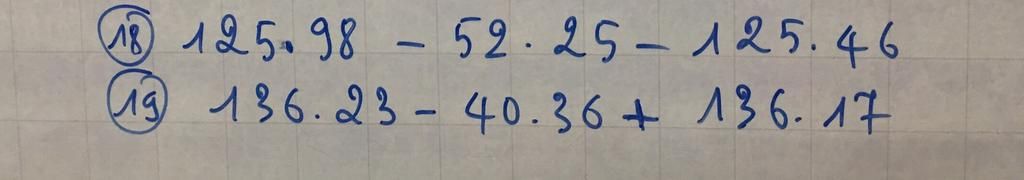 (18) 125.98 - 52.25 - 125.46
(19) 136.23 - 40.36 + 136.17